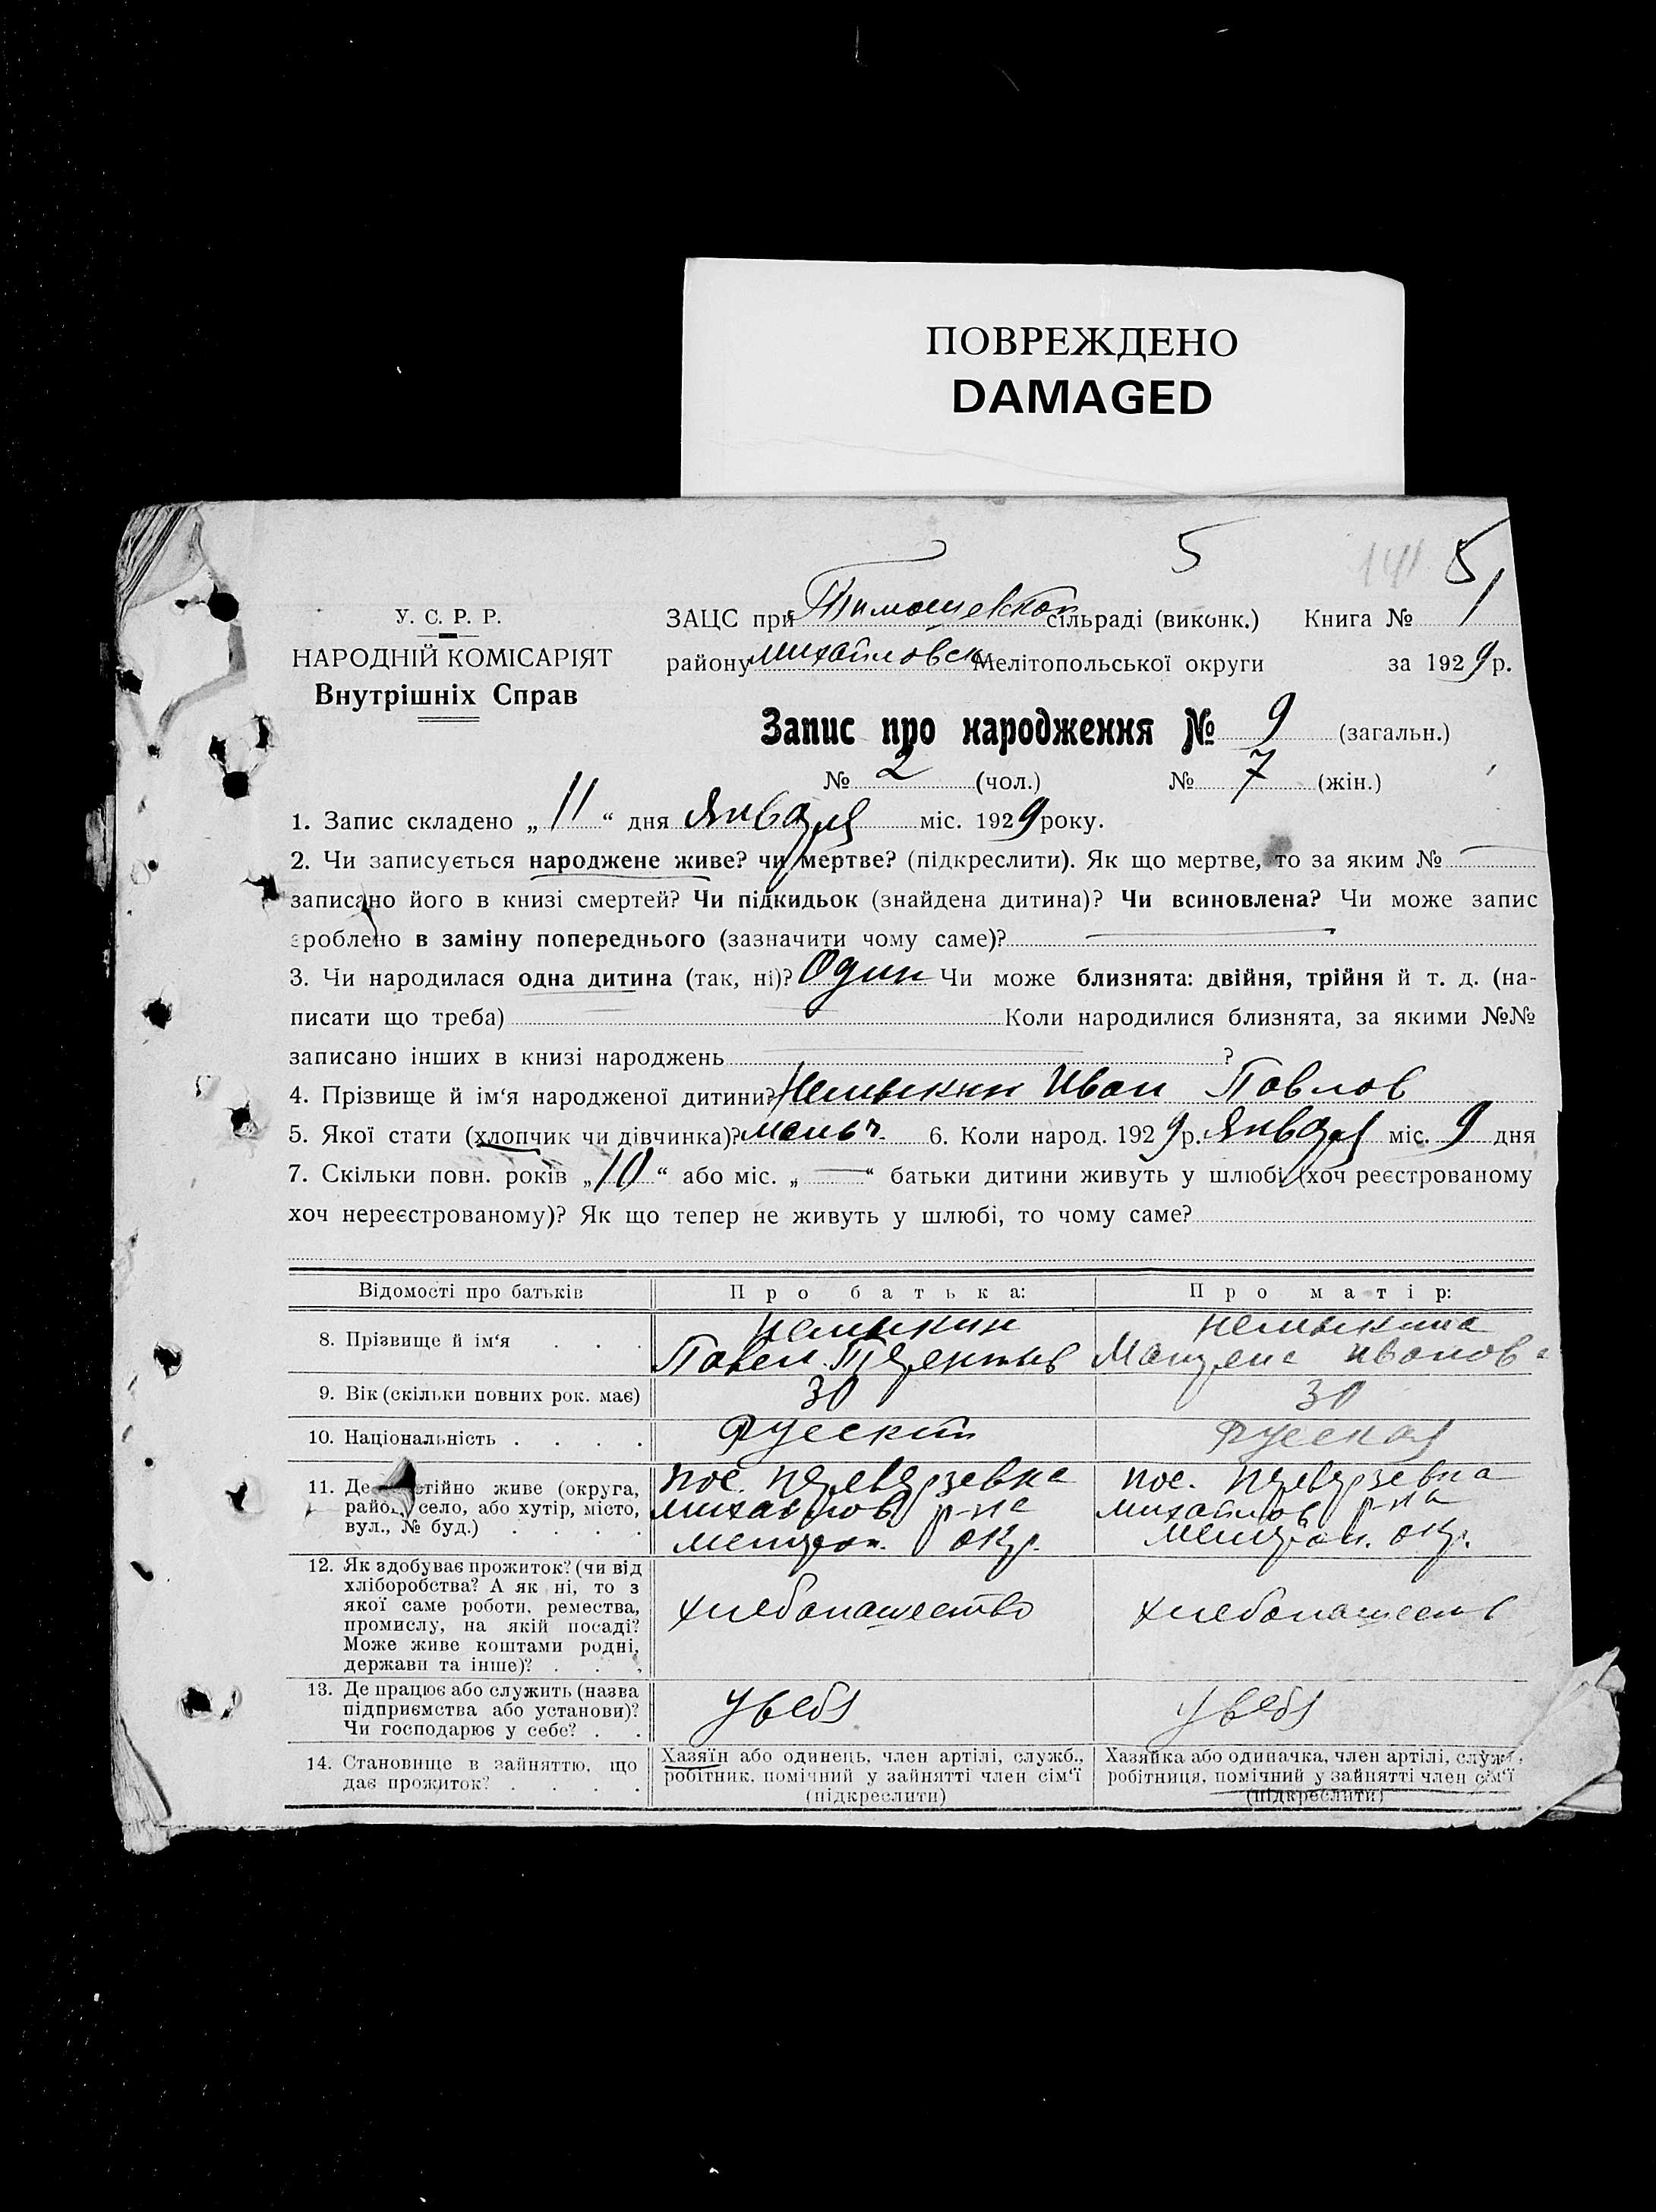 ПОВРЕЖДЕНО
DAMAGED
5
141 5
У. С. Р. Р.
НАРОДНІЙ КОМІСАРІЯТ
Внутрішніх Справ
ЗАЦС при Тимошевской сільраді (виконк.) Книга № 1
району Михайловск Мелітопольської округи за 1929 р.
Запис про народження № 9 (загальн.)
№ 2 (чол.) № 7 (жін.)
1. Запис складено „11“ дня Января міс. 1929 року.
2. Чи записується народжене живе? чи мертве? (підкреслити). Як що мертве, то за яким №
записано його в книзі смертей? Чи підкидьок (знайдена дитина)? Чи всиновлена? Чи може запис
зроблено в заміну попереднього (зазначити чому саме)?
3. Чи народилася одна дитина (так, ні)? Один Чи може близнята: двійня, трійня й т. д. (на-
писати що треба) Коли народилися близнята, за якими №№
записано інших в книзі народжень ?
4. Прізвище й ім‘я народженої дитини? Немыкин Иван Павлов
5. Якої стати (хлопчик чи дівчинка)? мальч. 6. Коли народ. 1929 р. Января міс. 9 дня
7. Скільки повн. років „10“ або міс. „—“ батьки дитини живуть у шлюбі (хоч реєстрованому
хоч нереєстрованому)? Як що тепер не живуть у шлюбі, то чому саме?
Відомості про батьків Про батька: Про матір:
8. Прізвище й ім‘я
Немыкин
Павел
Немыкина
Иванова
9. Вік (скільки повних рок. має) 30 30
10. Національність Русский Русская
11. Де постійно живе (округа,
район, село, або хутір, місто,
вул., № буд.)
пос.
Михайлов р-на
Мелитоп. окр.
пос.
Михайлов р-на
Мелитоп. окр.
12. Як здобуває прожиток? (чи від
хліборобства? А як ні, то з
якої саме роботи, ремества,
промислу, на якій посаді?
Може живе коштами родні,
держави та інше)?
хлебопашество
хлебопашест
13. Де працює або служить (назва
підприємства або установи)?
Чи господарює у себе?
у себя
у себя
14. Становище в зайняттю, що
дає прожиток?
Хазяїн або одинець, член артілі, служб.,
робітник, помічний у зайнятті член сім‘ї
(підкреслити)
Хазяйка або одиначка, член артілі, служб.,
робітниця, помічний у зайнятті член сім‘ї
(підкреслити)